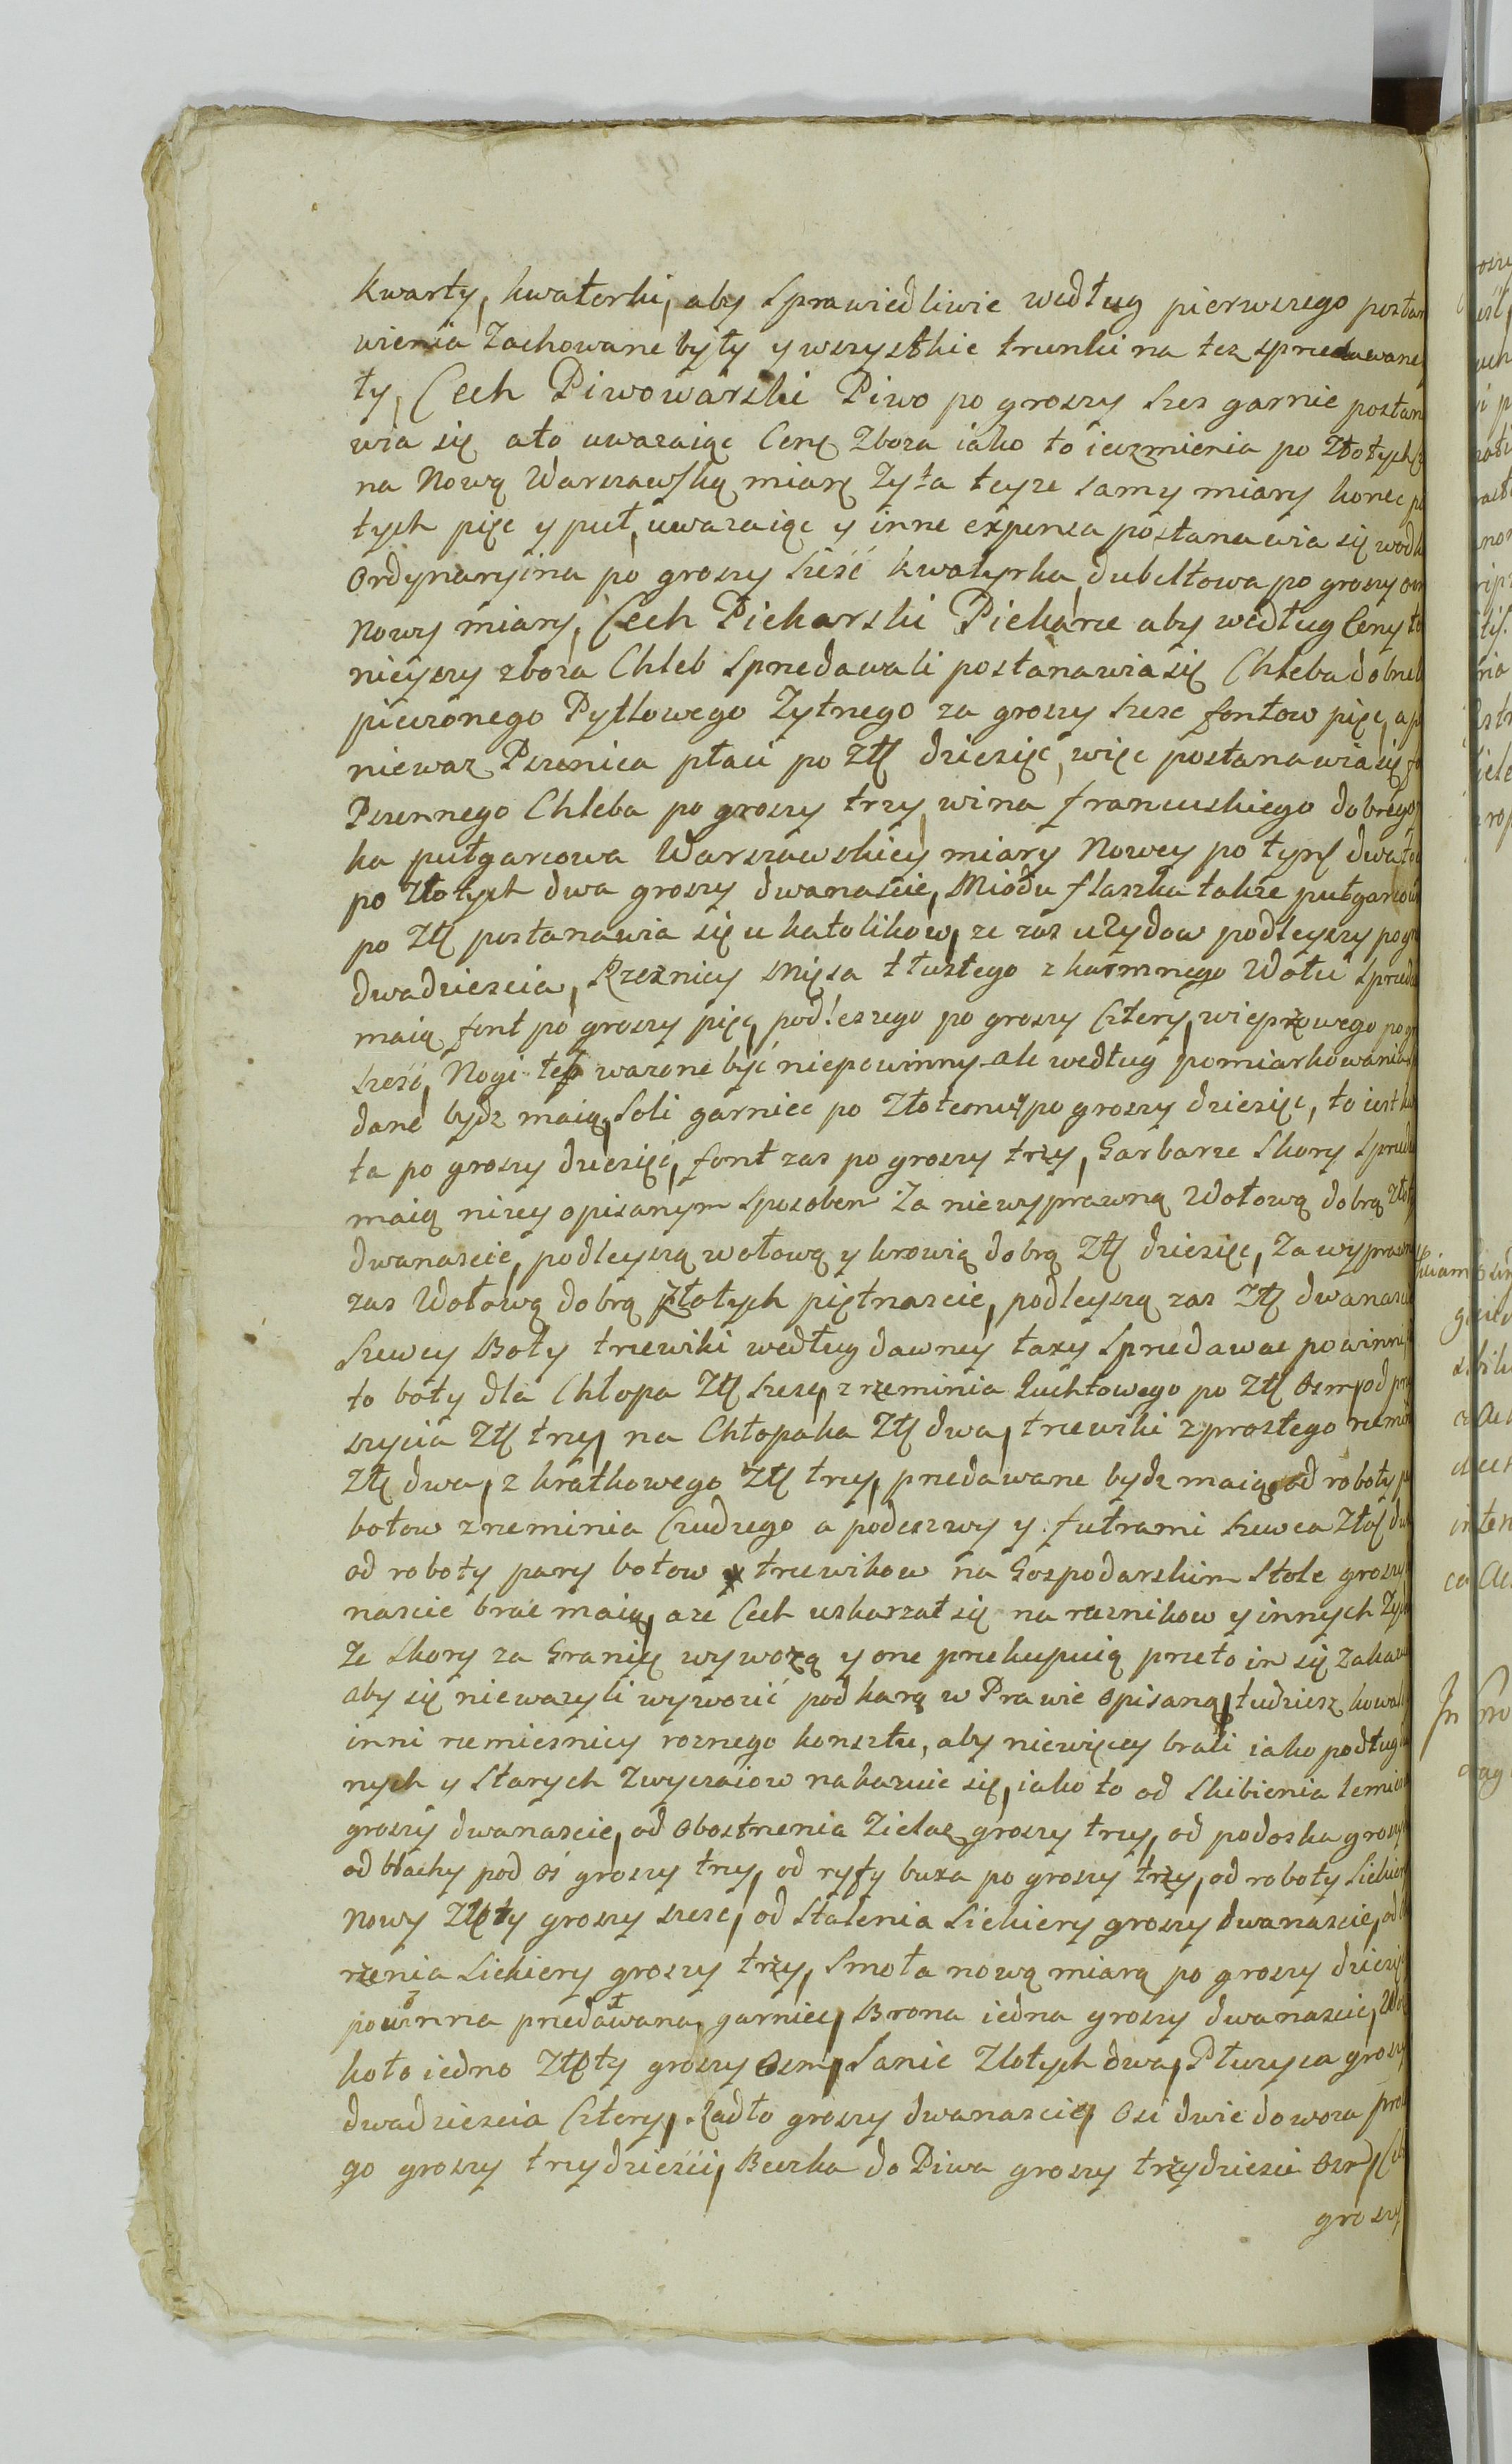 kwarty, kwaterki, aby sprawiedliwie według pierwszego postan
wienia zachowane były y wszystkie trunki na tez sprzedawane
ty, Cech Piwowarski Piwo po groszy szes garnie postan
wia się ato uwazaiąc Cenę Zboza iako to ięczmienia po Złotych
na Nową Warszawską miarę Zyta teyze samy miary korzec
tych pięc y puł, uwazaiąc y inne expensa postanawia się wodk
Ordynaryina po groszy sześć kwatyrka, dubeltowa po groszy osm
Nowy miary, Cech Piekarski Piekarze aby według Ceny
nieyszy zboza Chleb sprzedawali postanawia się Chleba dobrze
pieczonego Pytlowego Zytnego za groszy szesc fontow pięc, a po
niewaz Pszenica płaci po Złł dziesięc, więc postanawia się
Pszennego Chleba po groszy trzy, wina francuskiego dobrego
ka pułgarcowa Warszawskiey miary Nowey po tynf dwa
po Złotych dwa groszy dwanascie, Miodu flaszka takze pułgarcow
po Złł postanawia się u katolikow, ze zas u Zydow podleyszy po gr
dwadziescia, Rzeznicy Mięsa tłustego z karmnego Wołu sprzed
maią font po groszy pięc, podleszego po groszy Cztery, wieprzowego po gr
sześć, Nogi tesz wazone być niepowinny ale według pomiarkowania
dane bydz maią, Soli garniec po Złotemu y po groszy dziesięc, to iest kw
ta po groszy dziesięc, font zas po groszy trzy, Garbarze Skory sprzed
maią nizey opisanym sposobem za niewyprawną Wołową dobrą Zło
dwanascie, podleyszą wołową y krowią dobrą Złł dziesięc, za wyprawn
zas Wołową dobrą złotych piętnascie, podleyszą zas Złł dwanasci
Szewcy Boty trzewiki według dawney taxy sprzedawac powinni
to boty dla Chłopa Złł szesc, z rzeminia Iuchtowego po Złł Osm, od prz
szycia Złł trzy, na Chłopaka Złł dwa, trzewiki z prostego rzem
Złł dwa, z kratkowego Złł trzy, przedawane bydz maią, od roboty p
botow z rzeminia Cudzego a podeszwy y futrami szewca Złoł dw
od roboty pary botow trzewikow na Gospodarskim Stole groszy
nascie brac maią, aze Cech uskarzał się na rzeznikow y innych Zyd
Ze Skory za Granię wywozą y one przekupuią przeto im się Zakazu
aby się niewazyli wywozić pod karą w Prawie Opisaną, tudziesz kowal
inni rzemiesnicy roznego konsztu, aby niewięcey brali iako podług
nych y starych zwyczaiow nakazuie się, iako to od Skibienia lemie
groszy dwanascie, od Obostrzenia Zielaz groszy trzy, od podoska groszy
od blachy pod oś groszy trzy, od ryfy buxa po groszy trzy, od roboty Siekier
Nowy Złoty groszy szesc, od Stalenia Siekiery groszy dwanascie, od
rzenia Siekiery groszy trzy, Smoła nową miarą po groszy dziesię
powinna przedawana garniec, Brona iedna groszy dwanascie, Wo
koło iedno Złoty groszy Osm, Sanie Zlotych dwa, Płuzyca groszy
dwadziescia Cztery, Radło groszy dwanascie, Osi dwie do woza pros
go groszy trzydziesci, Beczka do Piwa groszy trzydziesci Osm,
groszy